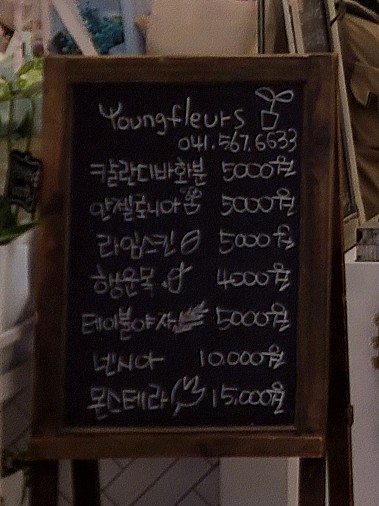 Youngfleurs
041.567.6633
카랑디바화분 5000원
안젤로니아 5000원
라임스킨 5000원
행운목 4000원
테이블야자 5000원
넨시아 10.000원
몬스테라 15.000원